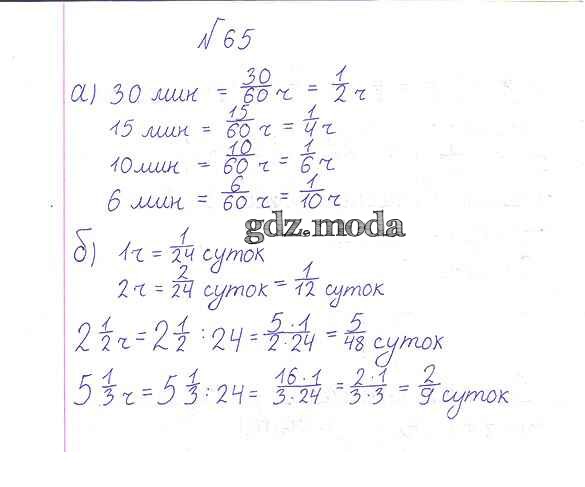 №65
а) 30 мин = 30/60 ч = 1/2 ч
15 мин = 15/60 ч = 1/4 ч
10 мин = 10/60 ч = 1/6 ч
6 мин = 6/60 ч = 1/10 ч
gdz.moda
б) 1ч = 1/24 суток
2ч = 2/24 суток = 1/12 суток
2 1/2 ч = 2 1/2 : 24 = 5·1/2·24 = 5/48 суток
5 1/3 ч = 5 1/3 : 24 = 16·1/3·24 = 2·1/3·3 = 2/9 суток